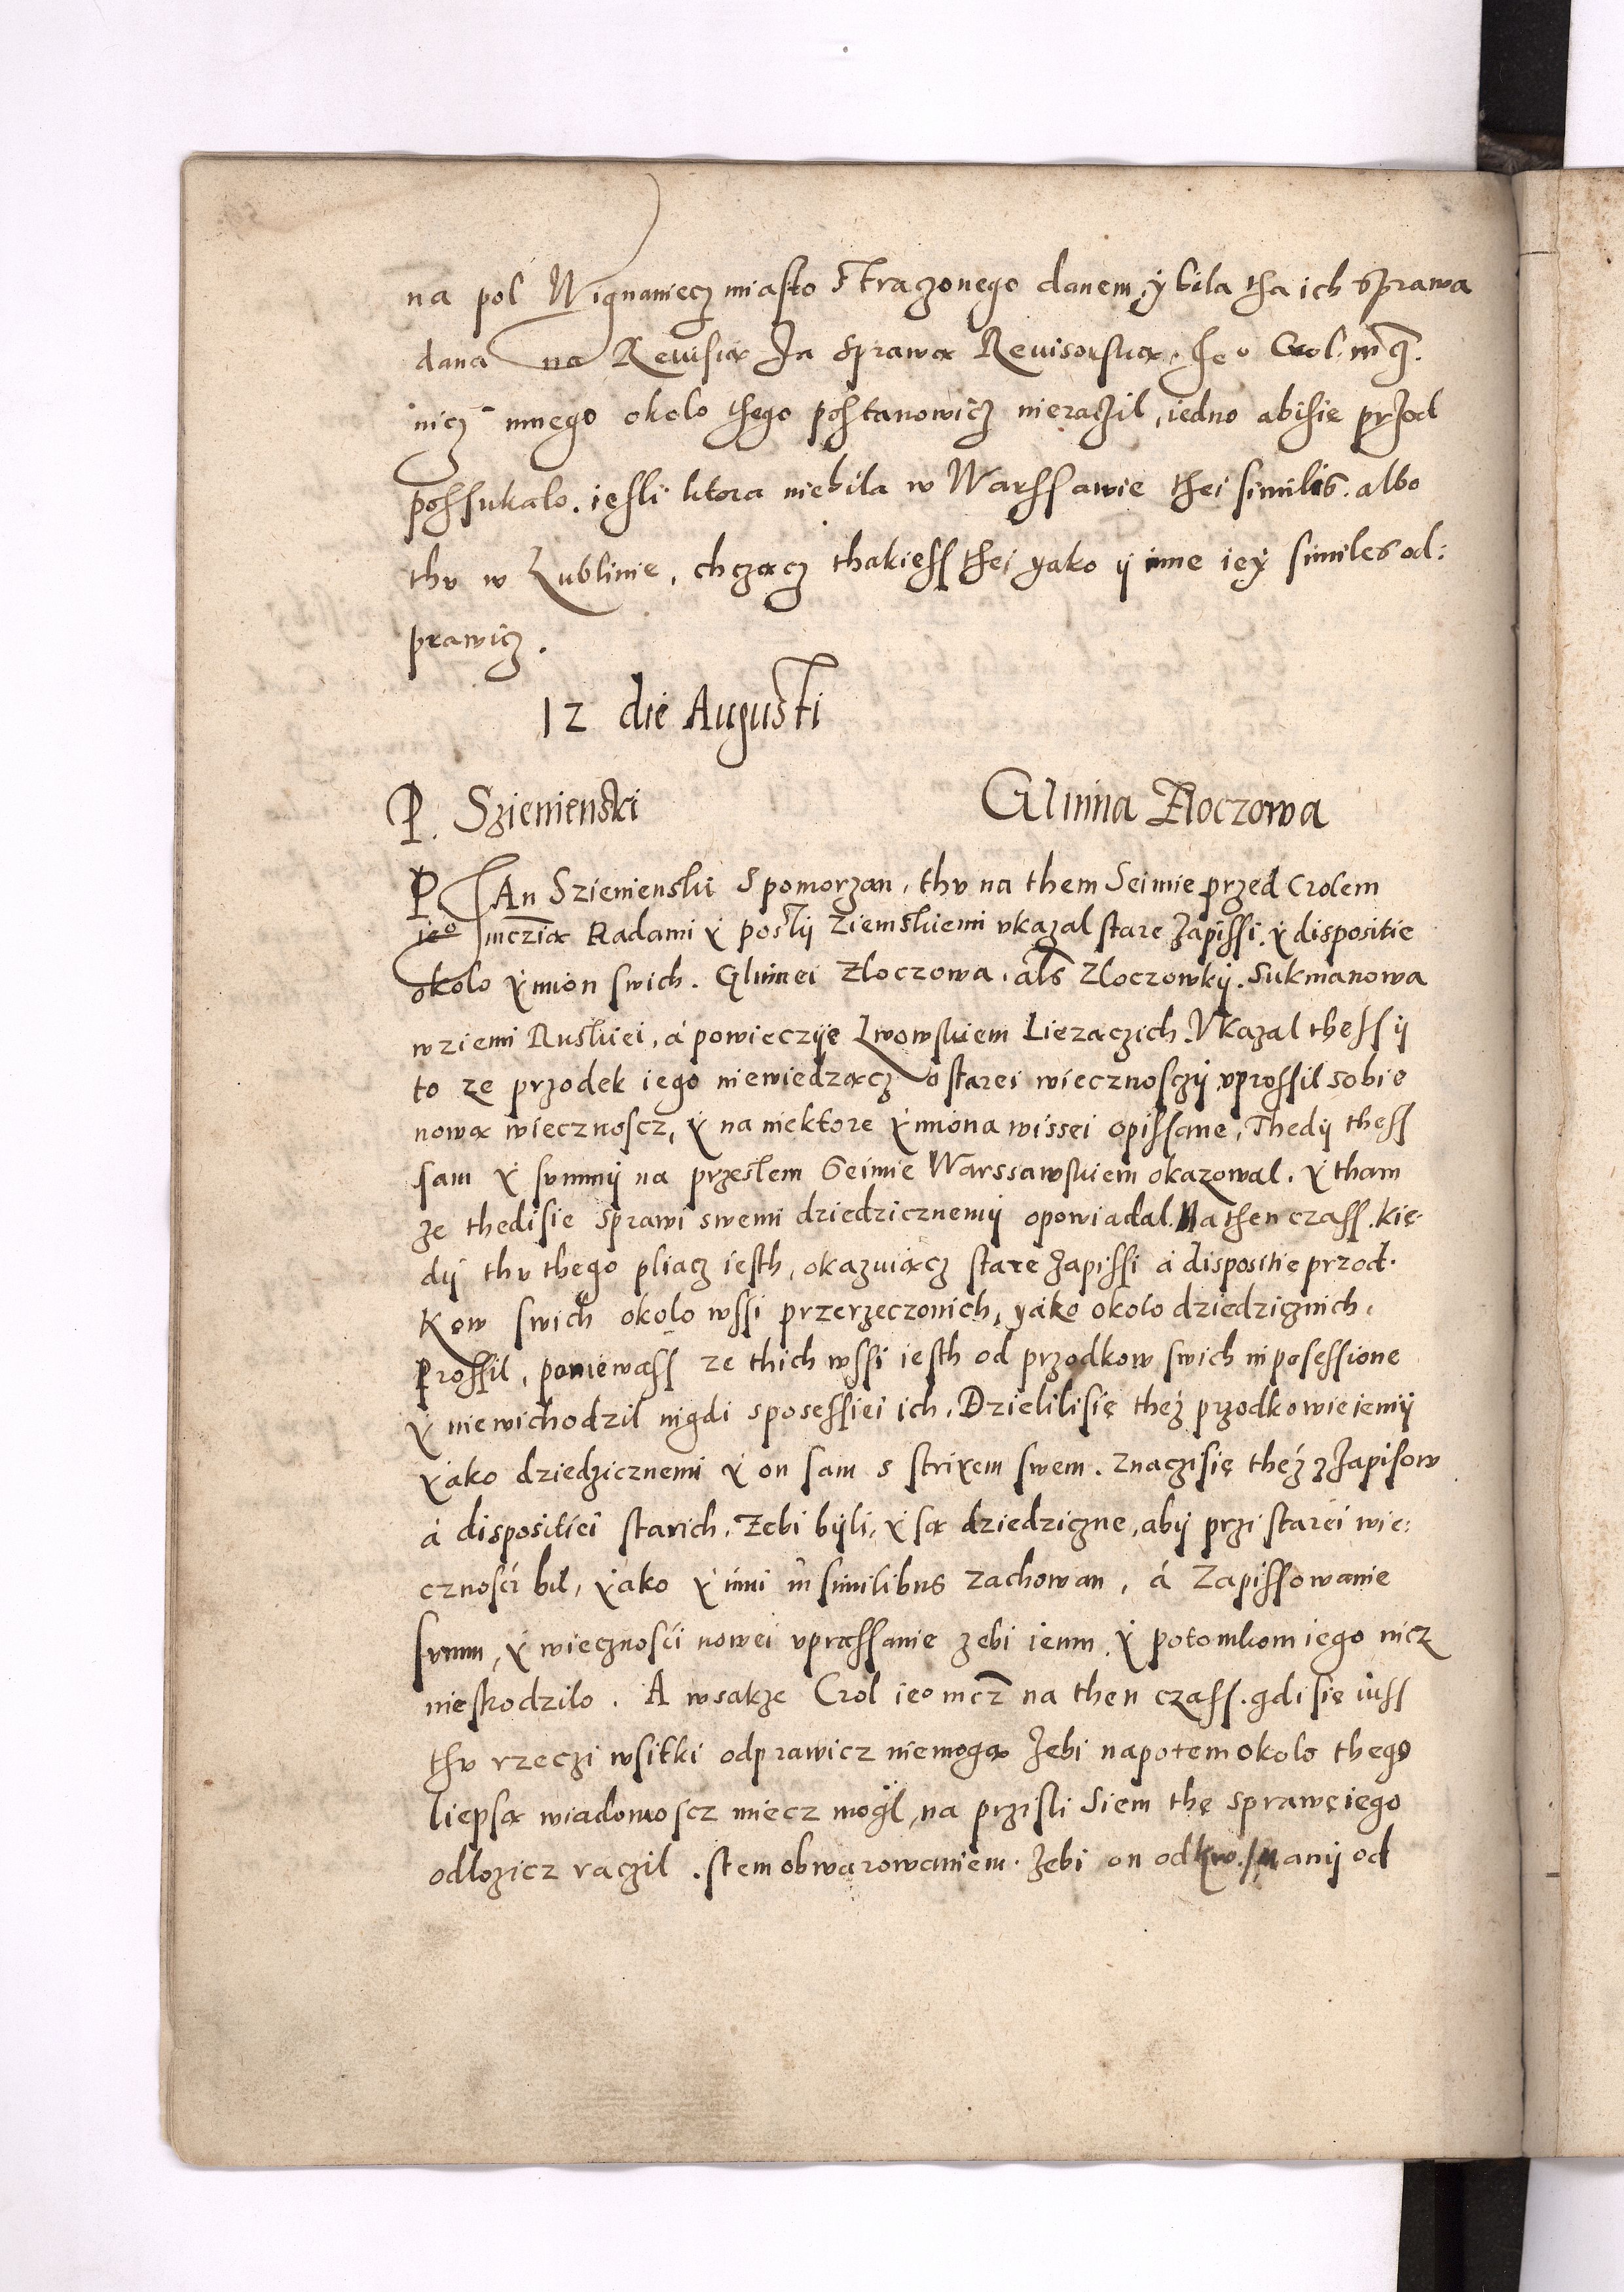 na pol Wignaniecz miasto straczonego danem, ÿ bila tha ich sprawa
dana na Reuisią Za sprawą Reuisorską. Je° Crol. mcz.
nicz innego okolo thego posstanowicz nieraczil, iedno abisie przod
possukalo. iesli ktora niebila w Warssawie thei similis. albo
thv w Lublinie, chczącz thakiess thei yako ij inne ieÿ similes od:
prawicz.
12 die Augusti
P. Szienienski Glinna Zloczowa
PAn Szienienski S pomorzan, thv na them Seimie przed Crolem
ie° mczią Radami ẏ poslij Ziemskiemi vkazal stare Zapissi. ẏ dispositie
okolo ẏmion swich. Glinnei Zloczowa, als Zloczowkij. Sukmanowa
w ziemi Ruskiei, á powieczije Lwowskiem Liezączich. Vkazal thessij
to ze przodek iego niewiedzącz o starei wiecznosczij vprossil sobie
nową wiecznoscz, ẏ na niektore ẏmiona wissei opissane, Thedij thess
sam ẏ summij na przeslem Seimie Warssawskiem okazowal. ẏ tham
ze thedisie sprawi swemi dziedzicznemij opowiadal. Na then czass. kie-
dij thv thego pliacz iesth, okazuiącz stare Zapissi á dispositie przod-
Kow swich okolo wssi przerzeczonich, yáko okolo dziedzicznich.
Prossil, poniewass ze thich wssi iesth od przodkow swich in posessione
ẏ niewichodzil nigdi sposessiei ich, Dzielilisię theź przodkowie iemij
ẏako dziedzicznemi ẏ on sam s strixem swem. Znaczisię theź z Zapisow
á dispositiei starich, Zebi bÿli, ẏ są dziedziczne, abij przi starei wie:
cznosći bil, ẏako ẏ inni in similibus zachowan, á Zapissowanie
summ, ẏ wiecznosći nowei vprassanie zebi iemu ẏ potomkom iego nicz
nieskodzilo. A wsakze Crol ie° mcz na then czass. gdi się iuss
thv rzeczi wsitki odprawicz niemogą Zebi napotem okolo thego
liepsą wiadomoscz miecz mogl, na przisli Siem thę sprawę iego
odlozicz raczil. stem obwarowaniem. Zebi on od anij od